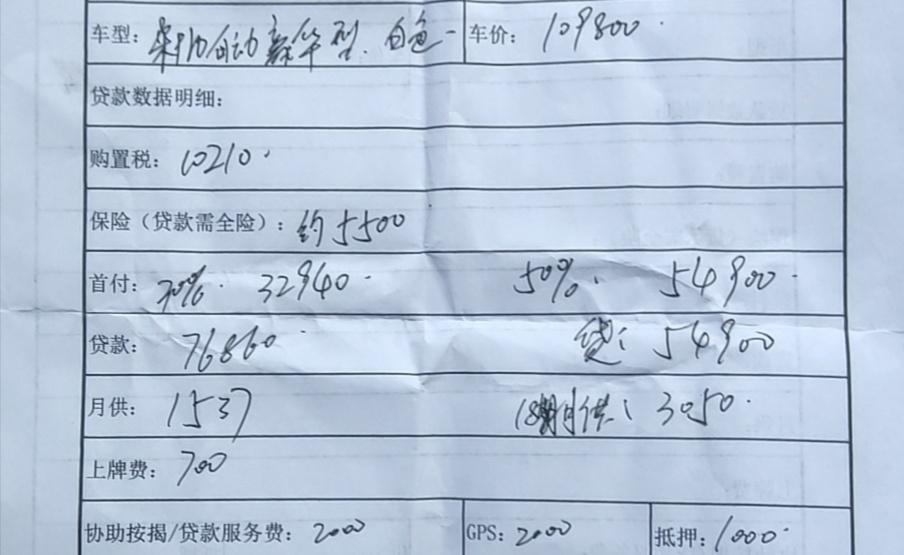 车型： 自动豪华型. 白色- 车价： 109800.
贷款数据明细：
购置税： 10210.
保险（贷款需全险）： 约5500
首付： 30%. 32940. 50%. 54900.
贷款： 76860. 贷： 54900
月供： 1537 18期月供： 3050.
上牌费： 700
协助按揭/贷款服务费： 2000 GPS： 2000 抵押： 1000.